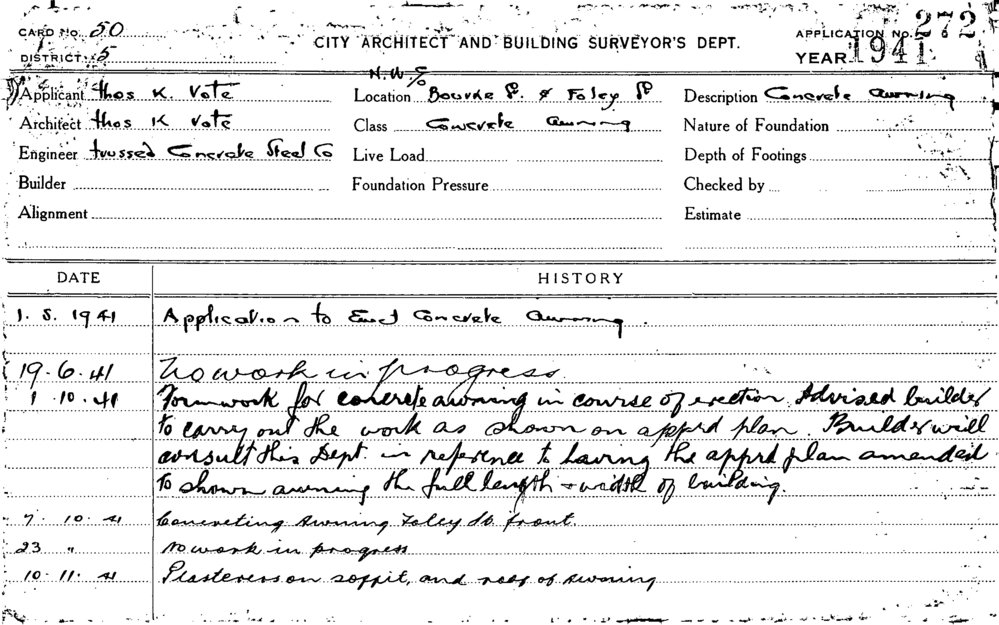 CARD No. 50
DISTRICT 5
CITY ARCHITECT AND BUILDING SURVEYOR'S DEPT.
APPLICATION No. 272
YEAR 1941
Applicant Thos K. Vote
N.W.C/
Location Bourke St. & Foley St
Description Concrete awning
Architect Thos K Vote
Class Concrete awning
Nature of Foundation
Engineer Trussed Concrete Steel Co
Live Load
Depth of Footings
Builder
Foundation Pressure
Checked by
Alignment
Estimate
DATE HISTORY
1. 5. 1941 Application to Erect Concrete awning.
19.6.41 No work in progress
1.10.41 Formwork for concrete awning in course of erection. Advised builder
to carry out the work as shown on apprd plan. Builder will
consult this Dept. in reference to having the apprd plan amended
to shown awning the full length & width of building.
7.10.41 Concreting awning Foley St. front.
23 " No work in progress
10.11.41 Plasterers on soffit, and of awning